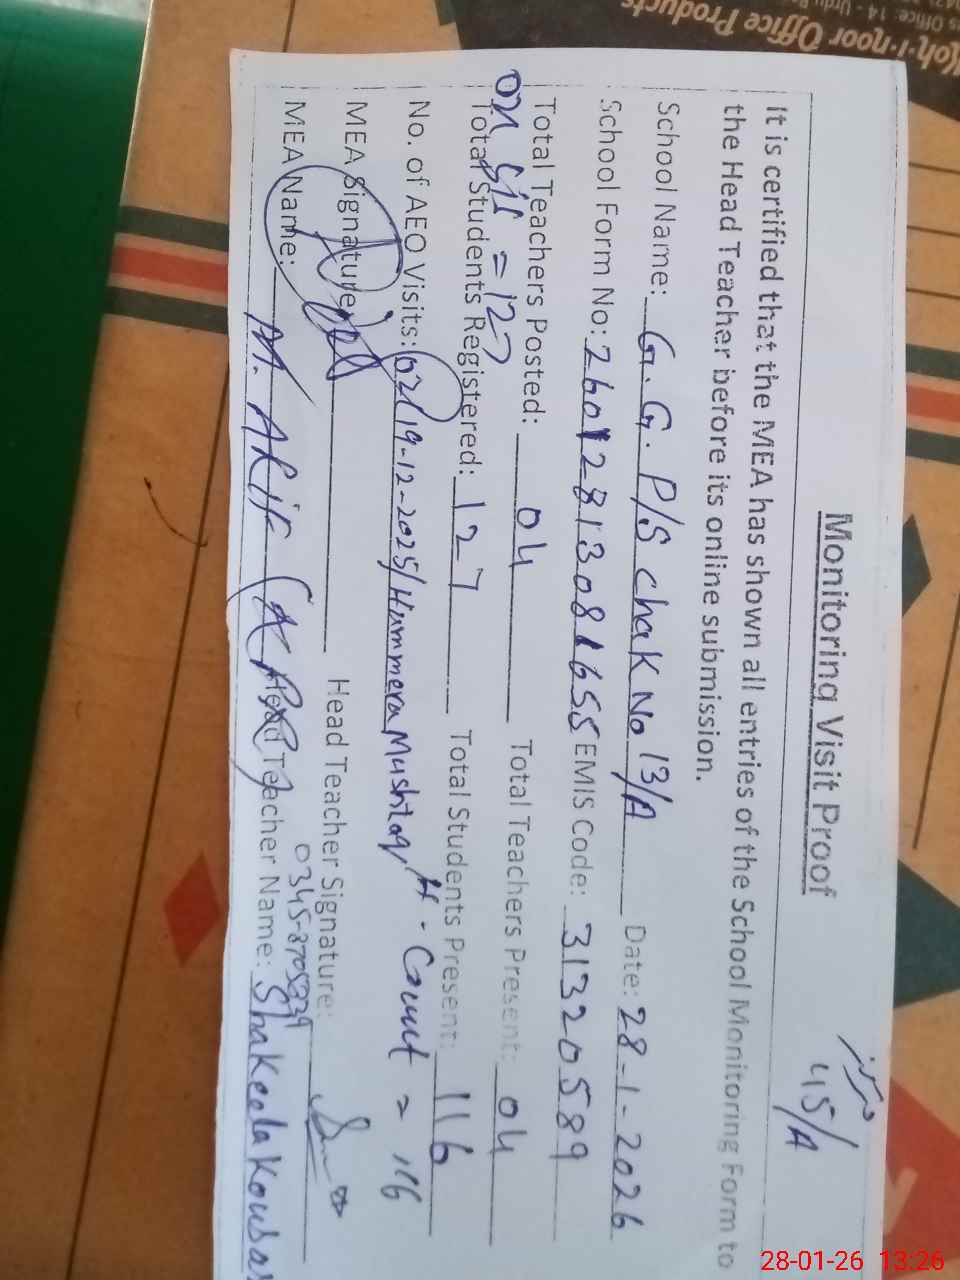 Koh-i-noor Office Products
Monitoring Visit Proof
45/A
It is certified that the MEA has shown all entries of the School Monitoring Form to
the Head Teacher before its online submission.
School Name: G. G. P/S Chak No 13/A Date: 28-1-2026
School Form No: 26012813081655 EMIS Code: 31320589
Total Teachers Posted: 04 Total Teachers Present: 04
on SIS = 127
Total Students Registered: 127 Total Students Present: 116
No. of AEO Visits: 02(19-12-2025/Hummera Mushtaq H. Count = 116
MEA Signature: Head Teacher Signature:
0345-8705339
MEA Name: M. ARIF Head Teacher Name: Shakeela Kousar
28-01-26 13:26